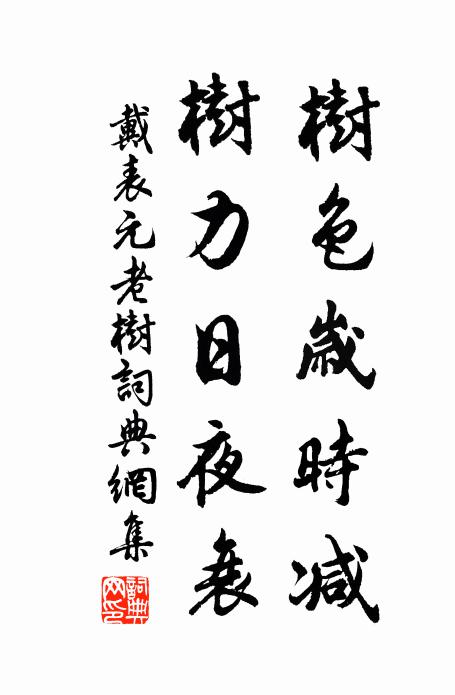 樹色歲時減
樹力日夜衰
戴表元老樹詞典網集
詞典網印